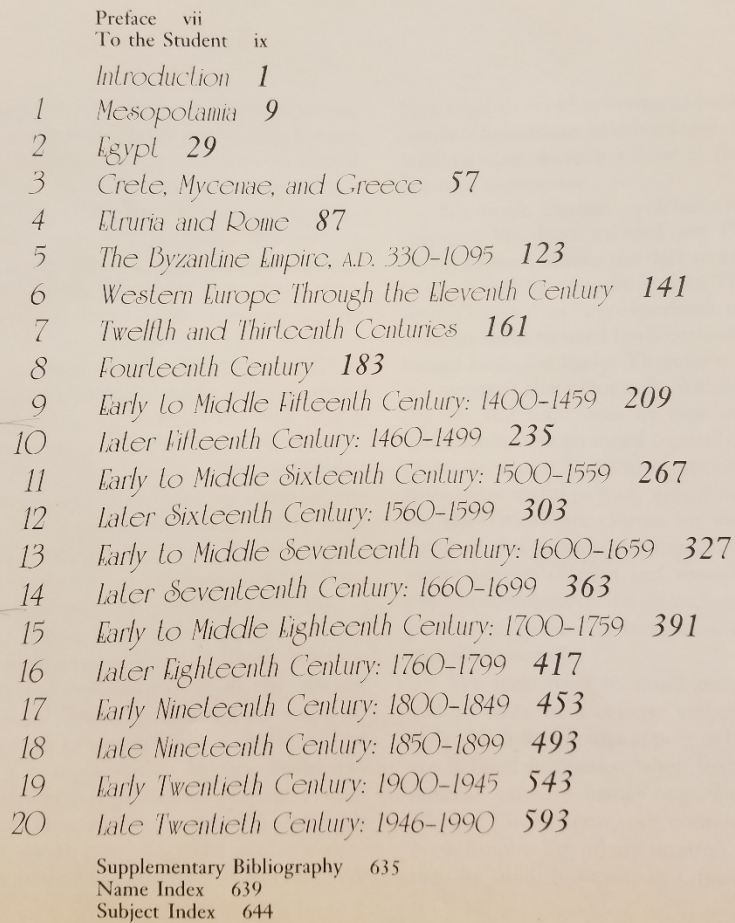 Preface vii
To the Student ix
Introduction 1
1 Mesopotamia 9
2 Egypt 29
3 Crete, Mycenae, and Greece 57
4 Etruria and Rome 87
5 The Byzantine Empire, A.D. 330–1095 123
6 Western Europe Through the Eleventh Century 141
7 Twelfth and Thirteenth Centuries 161
8 Fourteenth Century 183
9 Early to Middle Fifteenth Century: 1400–1459 209
10 Later Fifteenth Century: 1460–1499 235
11 Early to Middle Sixteenth Century: 1500–1559 267
12 Later Sixteenth Century: 1560–1599 303
13 Early to Middle Seventeenth Century: 1600–1659 327
14 Later Seventeenth Century: 1660–1699 363
15 Early to Middle Eighteenth Century: 1700–1759 391
16 Later Eighteenth Century: 1760–1799 417
17 Early Nineteenth Century: 1800–1849 453
18 Late Nineteenth Century: 1850–1899 493
19 Early Twentieth Century: 1900–1945 543
20 Late Twentieth Century: 1946–1990 593
Supplementary Bibliography 635
Name Index 639
Subject Index 644